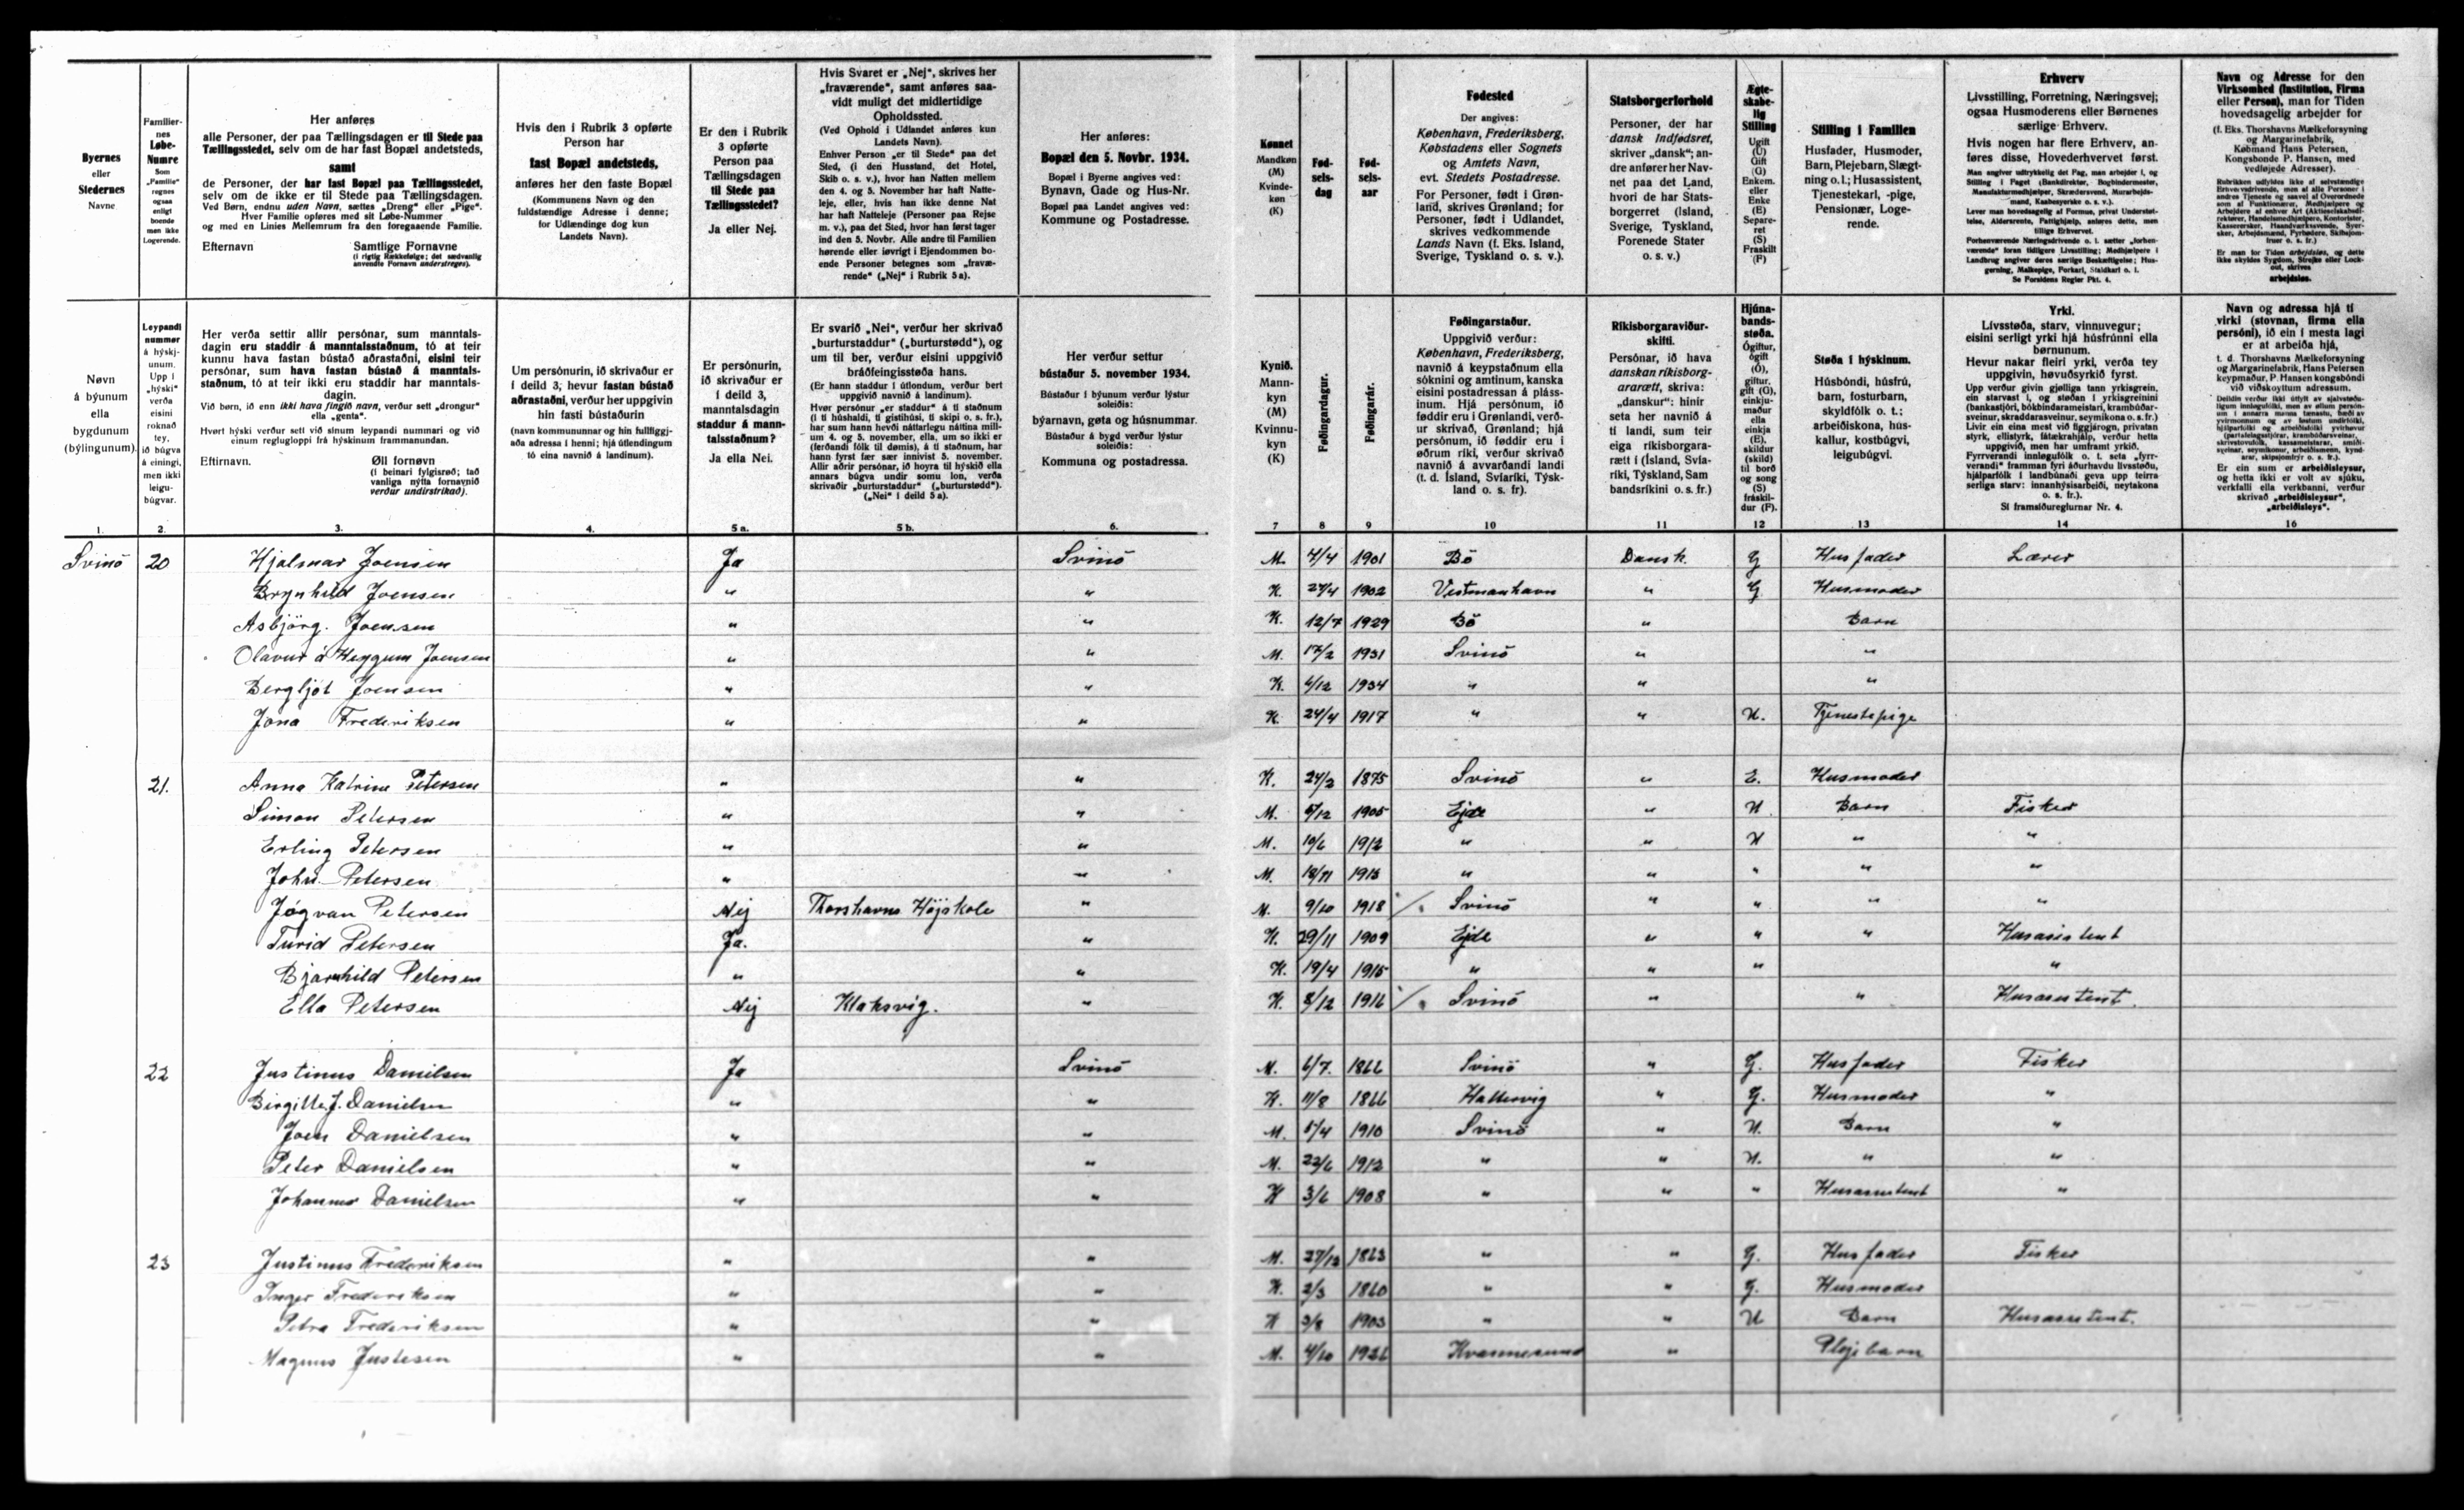 Byernes
eller
Stedernes
Navne
Familier-
nes
Løbe-
Numre
Som
„Familie“
regnes
ogsaa
enligt
boende
men ikke
Logerende.
Her anføres
alle Personer, der paa Tællingsdagen er til Stede paa
Tællingsstedet, selv om de har fast Bopæl andetsteds,
samt
de Personer, der har fast Bopæl paa Tællingsstedet,
selv om de ikke er til Stede paa Tællingsdagen.
Ved Børn, endnu uden Navn, sættes „Dreng“ eller „Pige“.
Hver Familie opføres med sit Løbe-Nummer
og med en Linies Mellemrum fra den foregaaende Familie.
Efternavn Samtlige Fornavne
(i rigtig Rækkefølge; det sædvanlig
anvendte Fornavn understreges).
Hvis den i Rubrik 3 opførte
Person har
fast Bopæl andetsteds,
anføres her den faste Bopæl
(Kommunens Navn og den
fuldstændige Adresse i denne;
for Udlændinge dog kun
Landets Navn).
Er den i Rubrik
3 opførte
Person paa
Tællingsdagen
til Stede paa
Tællingsstedet?
Ja eller Nej.
Hvis Svaret er „Nej“, skrives her
„fraværende“, samt anføres saa-
vidt muligt det midlertidige
Opholdssted.
(Ved Ophold i Udlandet anføres kun
Landets Navn).
Enhver Person „er til Stede“ paa det
Sted, (i den Husstand, det Hotel,
Skib o. s. v.), hvor han Natten mellem
den 4. og 5. November har haft Natte-
leje, eller, hvis han ikke denne Nat
har haft Natteleje (Personer paa Rejse
m. v.), paa det Sted, hvor han først tager
ind den 5. Novbr. Alle andre til Familien
hørende eller iøvrigt i Ejendommen bo-
ende Personer betegnes som „fravæ-
rende“ („Nej“ i Rubrik 5 a).
Her anføres:
Bopæl den 5. Novbr. 1934.
Bopæl i Byerne angives ved:
Bynavn, Gade og Hus-Nr.
Bopæl paa Landet angives ved:
Kommune og Postadresse.
Kønnet
Mandkøn
(M)
Kvinde-
køn
(K)
Fød-
sels-
dag
Fød-
sels-
aar
Fødested
Der angives:
København, Frederiksberg,
Købstadens eller Sognets
og Amtets Navn,
evt. Stedets Postadresse.
For Personer, født i Grøn-
land, skrives Grønland; for
Personer, født i Udlandet,
skrives vedkommende
Lands Navn (f. Eks. Island,
Sverige, Tyskland o. s. v.).
Statsborgerforhold
Personer, der har
dansk Indfødsret,
skriver „dansk“; an-
dre anfører her Nav-
net paa det Land,
hvori de har Stats-
borgerret (Island,
Sverige, Tyskland,
Forenede Stater
o. s. v.)
Ægte-
skabe-
lig
Stilling
Ugift
(U)
Gift
(G)
Enkem.
eller
Enke
(E)
Separe-
ret
(S)
Fraskilt
(F)
Stilling i Familien
Husfader, Husmoder,
Barn, Plejebarn, Slægt-
ning o. l.; Husassistent,
Tjenestekarl, -pige,
Pensionær, Loge-
rende.
Erhverv
Livsstilling, Forretning, Næringsvej;
ogsaa Husmoderens eller Børnenes
særlige Erhverv.
Hvis nogen har flere Erhverv, an-
føres disse, Hovederhvervet først.
Man angiver udtrykkelig det Fag, man arbejder i, og
Stilling i Faget (Bankdirektør, Bogbindermester,
Manufakturmedhjælper, Skrædersvend, Murarbejds-
mand, Kaabesyerske o. s. v.).
Lever man hovedsagelig af Formue, privat Understøt-
telse, Aldersrente, Pattighjælp, anføres dette, men
tillige Erhvervet.
Forhenværende Næringsdrivende o. l. sætter „forhen-
værende“ foran tidligere Livsstilling; Medhjælpere i
Landbrug angiver deres særlige Beskæftigelse; Hus-
gerning, Malkepige, Forkarl, Staldkarl o. l.
Se Forsidens Regler Pkt. 4.
Navn og Adresse for den
Virksomhed (Institution, Firma
eller Person), man for Tiden
hovedsagelig arbejder for
(f. Eks. Thorshavns Mælkeforsyning
og Margarinefabrik,
Købmand Hans Petersen,
Kongsbonde P. Hansen, med
vedføjede Adresser).
Er man for Tiden arbejdsløs, og dette
ikke skyldes Sygdom, Strejke eller Lock-
out, skrives
arbejdsløs.
Nøvn
á býunum
ella
bygdunum
(býlingunum).
Leypandi
nummer
á hýskj-
unum.
Upp í
„hýski“
verða
eisini
roknað
tey,
ið búgva
á einingi,
men ikki
leigu-
búgvar.
Her verða settir allir persónar, sum manntals-
dagin eru staddir á manntalsstaðnum, tó at teir
kunnu hava fastan bústað aðrastaðni, eisini teir
persónar, sum hava fastan bústað á manntals-
staðnum, tó at teir ikki eru staddir har manntals-
dagin.
Við børn, ið enn ikki hava fingið navn, verður sett „drongur“
ella „genta“.
Hvørt hýski verður sett við sínum leypandi nummari og við
einum reglugloppi frá hýskinum frammanundan.
Eftirnavn. Øll fornøvn
(í beinari fylgisrøð; tað
vanliga nýtta fornavnið
verður undirstrikað).
Um persónurin, ið skrivaður er
í deild 3; hevur fastan bústað
aðrastaðni, verður her uppgivin
hin fasti bústaðurin
(navn kommununnar og hin fullfíggj-
aða adressa í henni; hjá útlendingum
tó eina navnið á landinum).
Er persónurin,
ið skrivaður er
í deild 3,
manntalsdagin
staddur á mann-
talsstaðnum?
Ja ella Nei.
Er svarið „Nei“, verður her skrivað
„burturstaddur“ („burturstødd“), og
um til ber, verður eisini uppgivið
bráðfeingisstøða hans.
(Er hann staddur í útlondum, verður bert
uppgivið navnið á landinum).
Hvør persónur „er staddur“ á tí staðnum
(í tí húshaldi, tí gistihúsi, tí skipi o. s. fr.),
har sum hann hevði náttarlegu náttina mill-
um 4. og 5. november, ella, um so ikki er
(ferðandi fólk til dømis), á tí staðnum, har
hann fyrst fær sær innivist 5. november.
Allir aðrir persónar, ið hoyra til hýskið ella
annars búgva undir somu lon, verða
skrivaðir „burturstaddur“ („burturstødd“).
(„Nei“ í deild 5 a).
Her verður settur
bústaður 5. november 1934.
Bústaður í býunum verður lýstur
soleiðis:
býarnavn, gøta og húsnummar.
Bústaður á bygd verður lýstur
soleiðis:
Kommuna og postadressa.
Kynið.
Mann-
kyn
(M)
Kvinnu-
kyn
(K)
Føðingardagur.
Føðingarár.
Føðingarstaður.
Uppgivið verður:
København, Frederiksberg,
navnið á keypstaðnum ella
sóknini og amtinum, kanska
eisini postadressan á pláss-
inum. Hjá persónum, ið
føddir eru í Grønlandi, verð-
ur skrivað, Grønland; hjá
persónum, ið føddir eru í
øðrum ríki, verður skrivað
navnið á avvarðandi landi
(t. d. Ísland, Svíaríki, Týsk-
land o. s. fr).
Ríkisborgaraviður-
skifti.
Persónar, ið hava
danskan ríkisborg-
ararætt, skriva:
„danskur“: hinir
seta her navnið á
tí landi, sum teir
eiga ríkisborgara-
rætt í (Ísland, Svía-
ríki, Týskland, Sam
bandsríkini o. s. fr.)
Hjúna-
bands-
støða.
Ógiftur,
ógift
(Ó),
giftur,
gift (G),
einkju-
maður
ella
einkja
(E),
skildur
(skild)
til borð
og song
(S)
fráskil-
dur (F).
Støða í hýskinum.
Húsbóndi, húsfrú,
barn, fosturbarn,
skyldfólk o. t.;
arbeiðiskona, hús-
kallur, kostbúgvi,
leigubúgvi.
Yrki.
Lívsstøða, starv, vinnuvegur;
eisini serligt yrki hjá húsfrúnni ella
børnunum.
Hevur nakar fleiri yrki, verða tey
uppgivin, høvuðsyrkið fyrst.
Upp verður givin gjølliga tann yrkisgrein,
ein starvast í, og støðan í yrkisgreinini
(bankastjóri, bókbindarameistari, krambúðar-
sveinur, skraddarasveinur, seymikona o. s. fr.)
Livir ein eina mest við fíggjárogn, privatan
styrk, ellistyrk, fátækrahjálp, verður hetta
uppgivið, men har umframt yrkið.
Fyrrverandi innløgufólk o. t. seta „fyrr-
verandi“ framman fyri áðurhavdu lívsstøðu,
hjálparfólk í landbúnaði geva upp teirra
serliga starv: innanhýsisarbeiði, neytakona
o. s. fr.).
Sí framsíðureglurnar Nr. 4.
Navn og adressa hjá tí
virki (stovnan, firma ella
persóni), ið ein í mesta lagi
er at arbeiða hjá,
t. d. Thorshavns Mælkeforsyning
og Margarinefabrik, Hans Petersen
keypmaður, P. Hansen kongsbóndi
við viðskoyttum adressum.
Er ein sum er arbeiðisleysur,
og hetta ikki er volt av sjúku,
verkfalli ella verkbanni, verður
skrivað „arbeiðisleysur“,
„arbeiðisleys“.
1. 2. 3. 4. 5 a. 5 b. 6. 7 8 9 10 11 12 13 14 16
Svinö 20 Hjalmar Joensen Ja Svinö M. 4/4 1901 Bö Dansk. G Husfader Lærer
Brynhild Joensen " " K. 27/4 1902 Vestmanhavn " G Husmoder
Asbjörg. Joensen " " K. 12/7 1929 Bö " Barn
Olavur á Heygum Joensen " " M. 17/2 1931 Svinö " "
Bergljót Joensen " " K. 6/12 1934 " " "
Jona Frederiksen " " K. 24/4 1917 " " U. Tjenestepige
21. Anna Katrine Petersen " " K. 24/2 1875 Svinö " E. Husmoder
Simon Petersen " " M. 5/12 1905 Ejde " U Barn Fisker
Erling Petersen " " M. 10/6 1912 " " U " "
John Petersen " " M. 18/11 1913 " " " " "
Jógvan Petersen Nej Thorshavns Højskole " M. 9/10 1918 Svinö " " " "
Turid Petersen Ja. " K. 29/11 1909 Ejde " " " Husasistent
Bjarnhild Petersen " " K. 19/4 1915 " " " "
Ella Petersen Nej Klaksvig. " K. 8/12 1916 Svinö " " Husasistent.
22 Justinus Danielsen Ja Svinö M. 6/7. 1866 Svinö " G. Husfader Fisker
Birgitte J. Danielsen " " K. 11/8 1866 Hattervig " G. Husmoder "
Joen Danielsen " " M. 5/4 1910 Svinö " U. Barn "
Peter Danielsen " " M. 22/6 1912 " " U. " "
Johanna Danielsen " " K 3/6 1908 " " " Husassistent "
23 Justinus Frederiksen " " M. 27/12 1863 " " G. Husfader Fisker
Inger Frederiksen " " K. 2/3 1860 " " G. Husmoder
Petra Frederiksen " " K 3/8 1903 " " U Barn Husassistent.
Magnus Justesen " " M. 4/10 1926 Kvannesund " Plejebarn